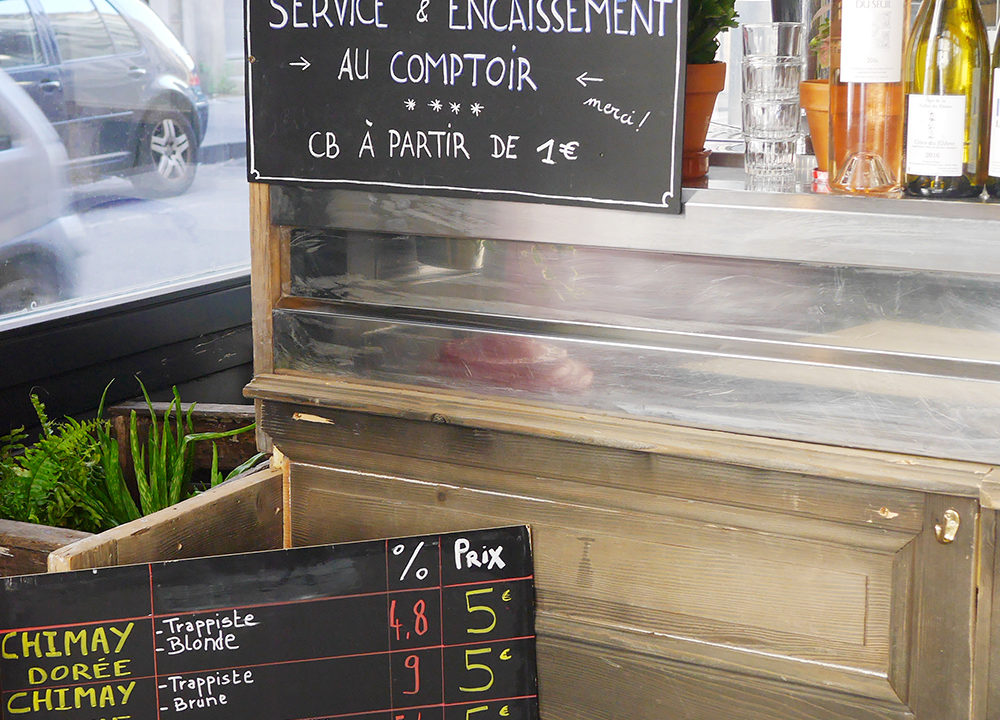 SERVICE & ENCAISSEMENT
→ AU COMPTOIR ←
merci!
****
CB À PARTIR DE 1€
DU SEUIL
2016
% Prix
CHIMAY DORÉE -Trappiste -Blonde 4,8 5€
CHIMAY -Trappiste -Brune 9 5€
5€